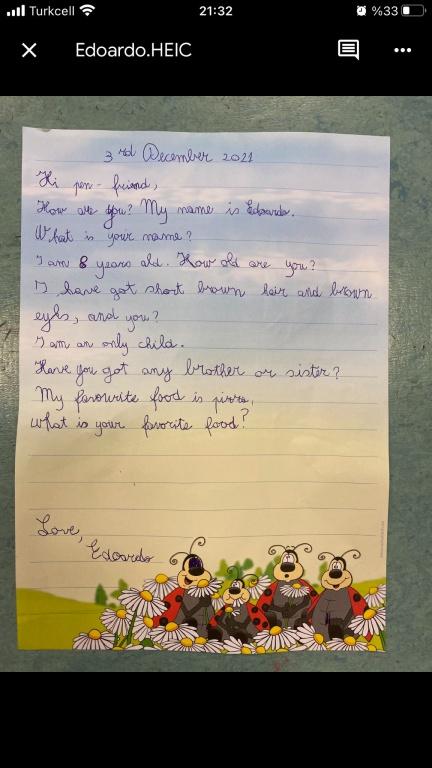 Turkcell
21:32
%33
Edoardo.HEIC
3rd December 2021
Hi pen-friend,
How are you? My name is Edoardo.
What is your name?
I am 8 years old. How old are you?
I have got short brown hair and brown
eyes, and you?
I am an only child.
Have you got any brother or sister?
My favourite food is pizza,
what is your favorite food?
Love,
Edoardo